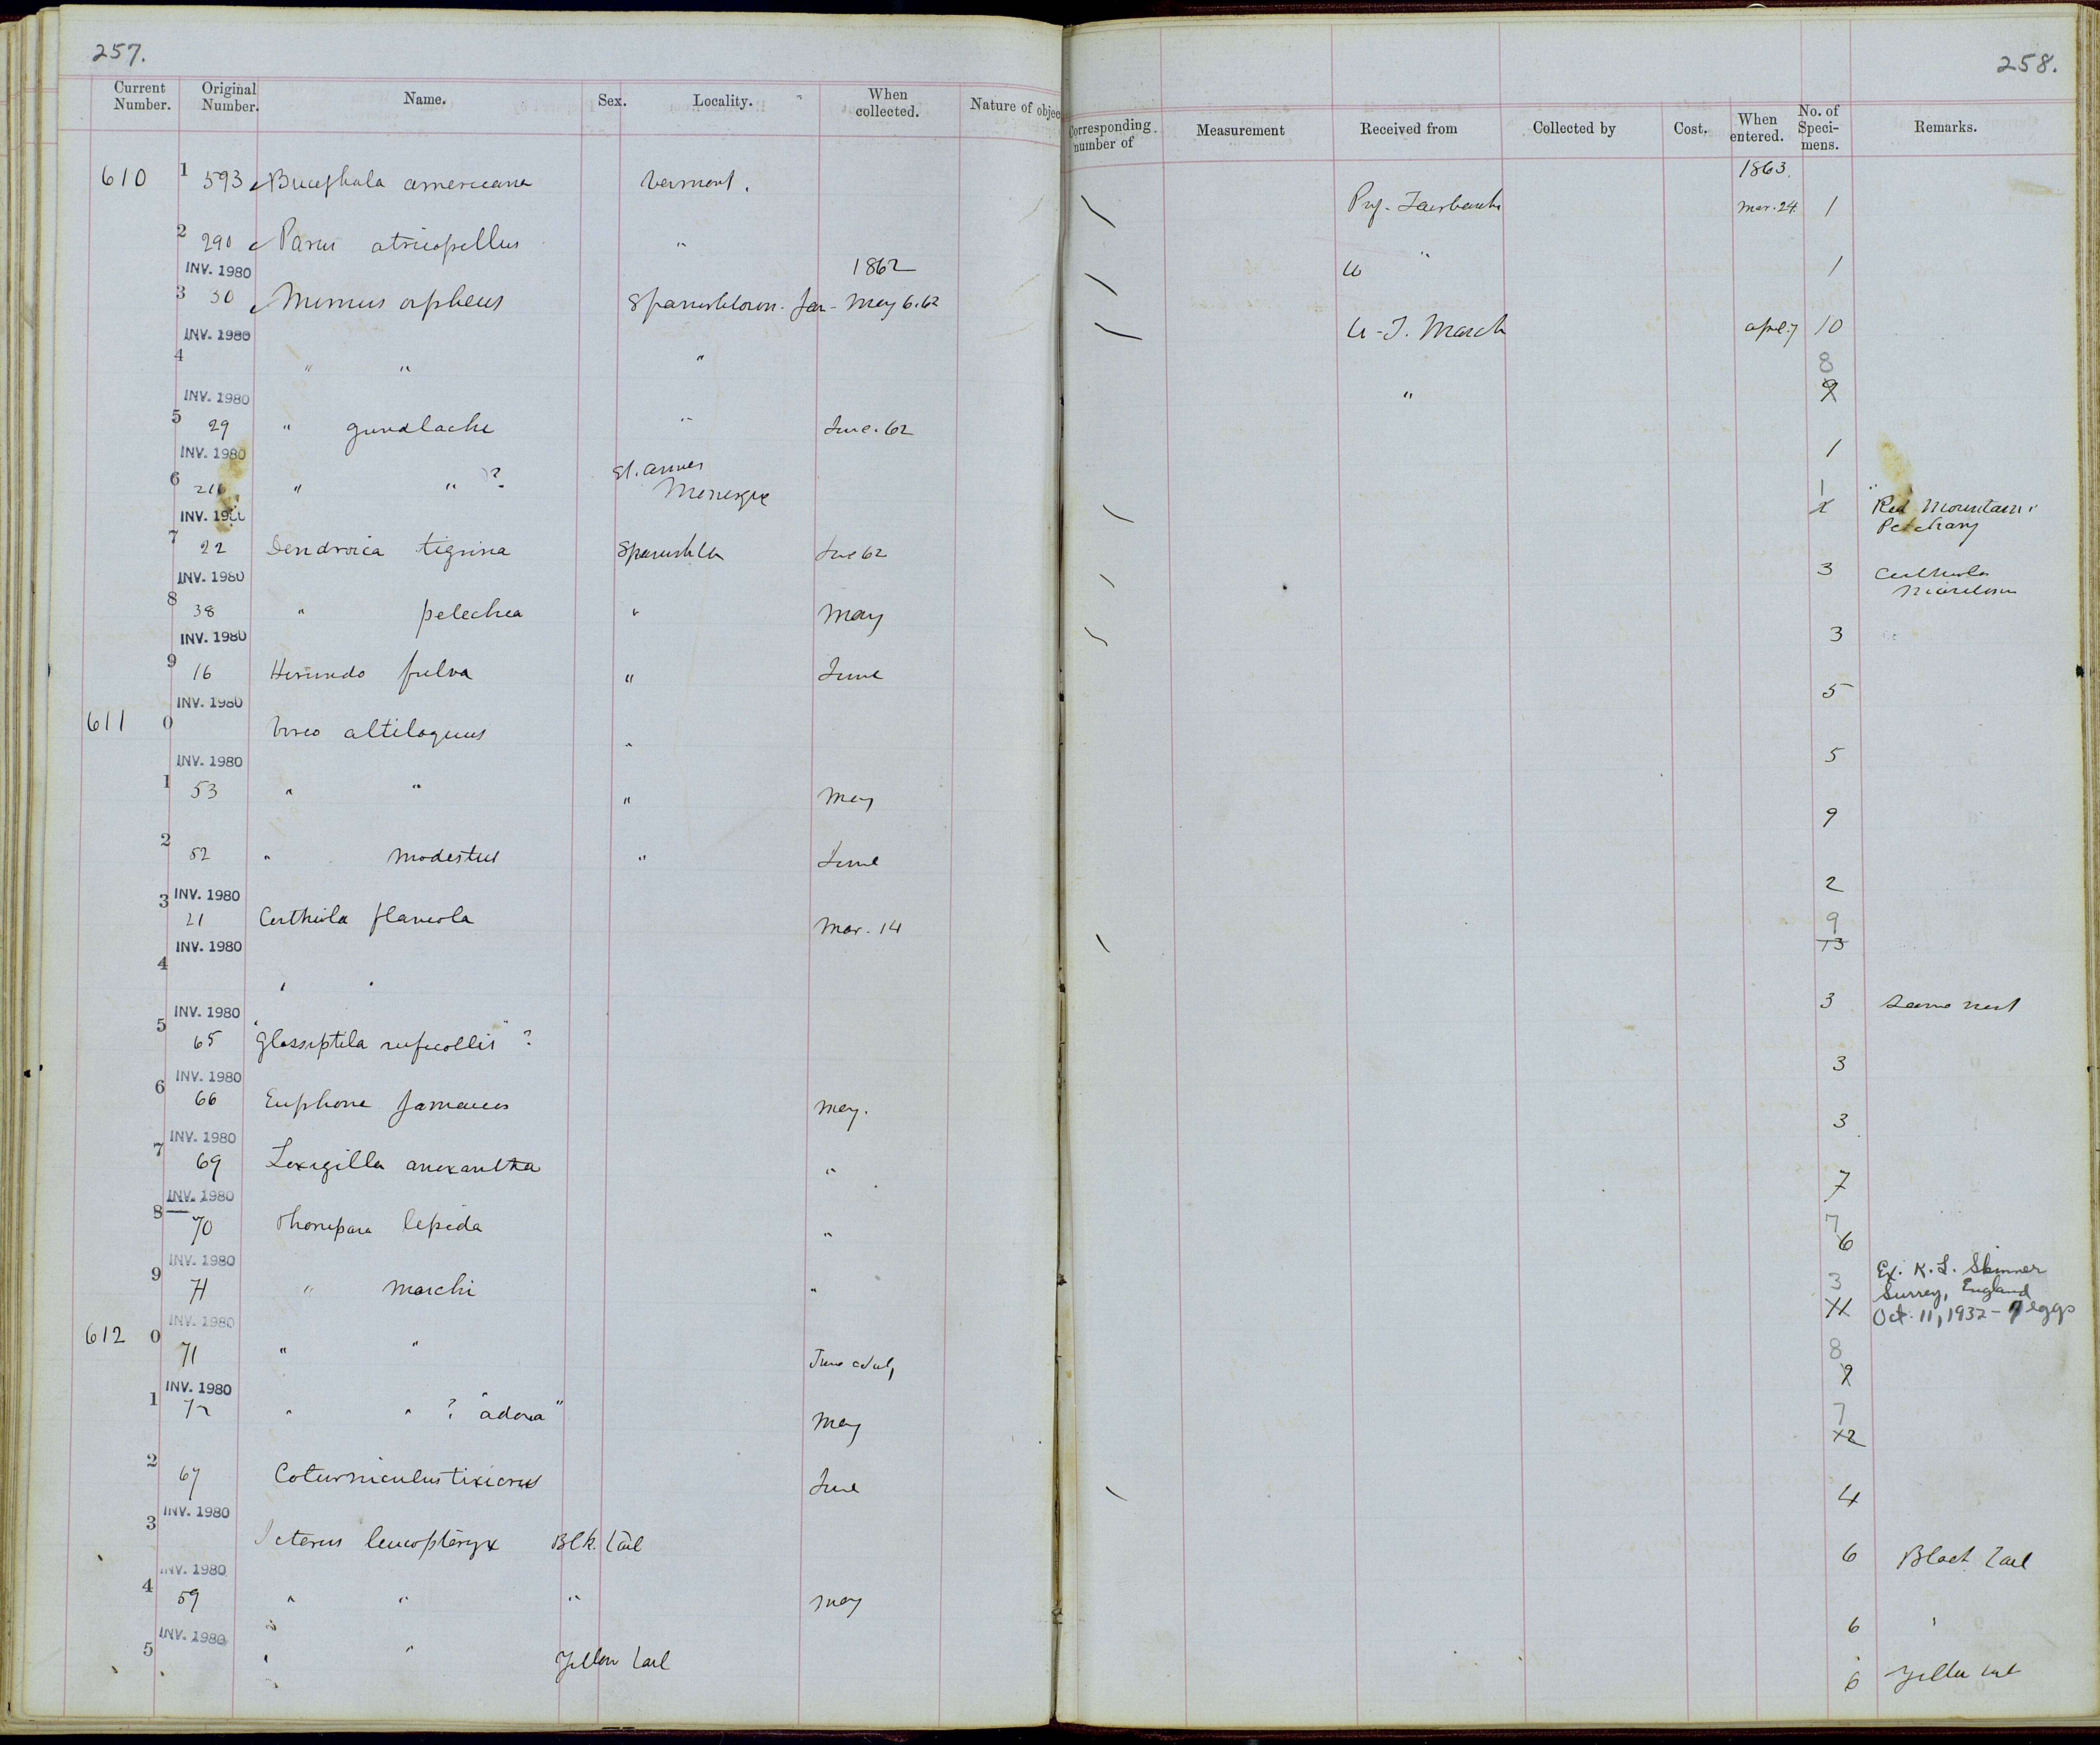 257.
Current Number. Original Number. Name. Sex. Locality. When collected. Nature of objec
610 1 593 Bucephala americana Vermont.
2 290 Parus atricapillus "
INV. 1980 1862
3 30 Mimus orpheus Spanishtown. Jam - May 6.62
INV. 1980
4 " " "
INV. 1980
5 29 " gundlachi " June. 62
INV. 1980
6 216 " " ? St. Annes
INV. 1980
7 22 Dendroica tigrina Spanishtn June 62
INV. 1980
8 38 " petechia " May
INV. 1980
9 16 Hirundo fulva " June
INV. 1980
611 0 Vireo altiloquus "
INV. 1980
1 53 " " " May
2 52 " modestus " June
INV. 1980
3 21 Certhiola flaveola Mar. 14
INV. 1980
4 " "
INV. 1980
5 65 "Glossiptila ruficollis" ?
INV. 1980
6 66 Euphone Jamaica May.
INV. 1980
7 69 Loxigilla anoxantha "
INV. 1980
8 70 Phonipara lepida "
INV. 1980
9 71 " marchi "
INV. 1980
612 0 71 " " June & July
INV. 1980
1 72 " " ? "adoxa" May
2 67 Coturniculus tixicrus June
INV. 1980
3 Icterus leucopteryx Blk. tail
INV. 1980
4 59 " " " May
INV. 1980
5 " " Yellow tail
258.
Corresponding number of Measurement Received from Collected by Cost. When entered. No. of Specimens. Remarks.
1863.
Prof. Fairbanks Mar. 24. 1
" 1
W. T. March April 7 10
8
" 9
1
1
"Red Mountain"
Petchary
3 Certhiola
3
5
5
9
2
9
13
3 Same nest
3
3
7
7
6
Ex. K. L. Skinner
3 Surrey, England
11 Oct. 11, 1932 - 7 eggs
8
9
7
12
4
6 Black tail
6 "
6 Yellow tail